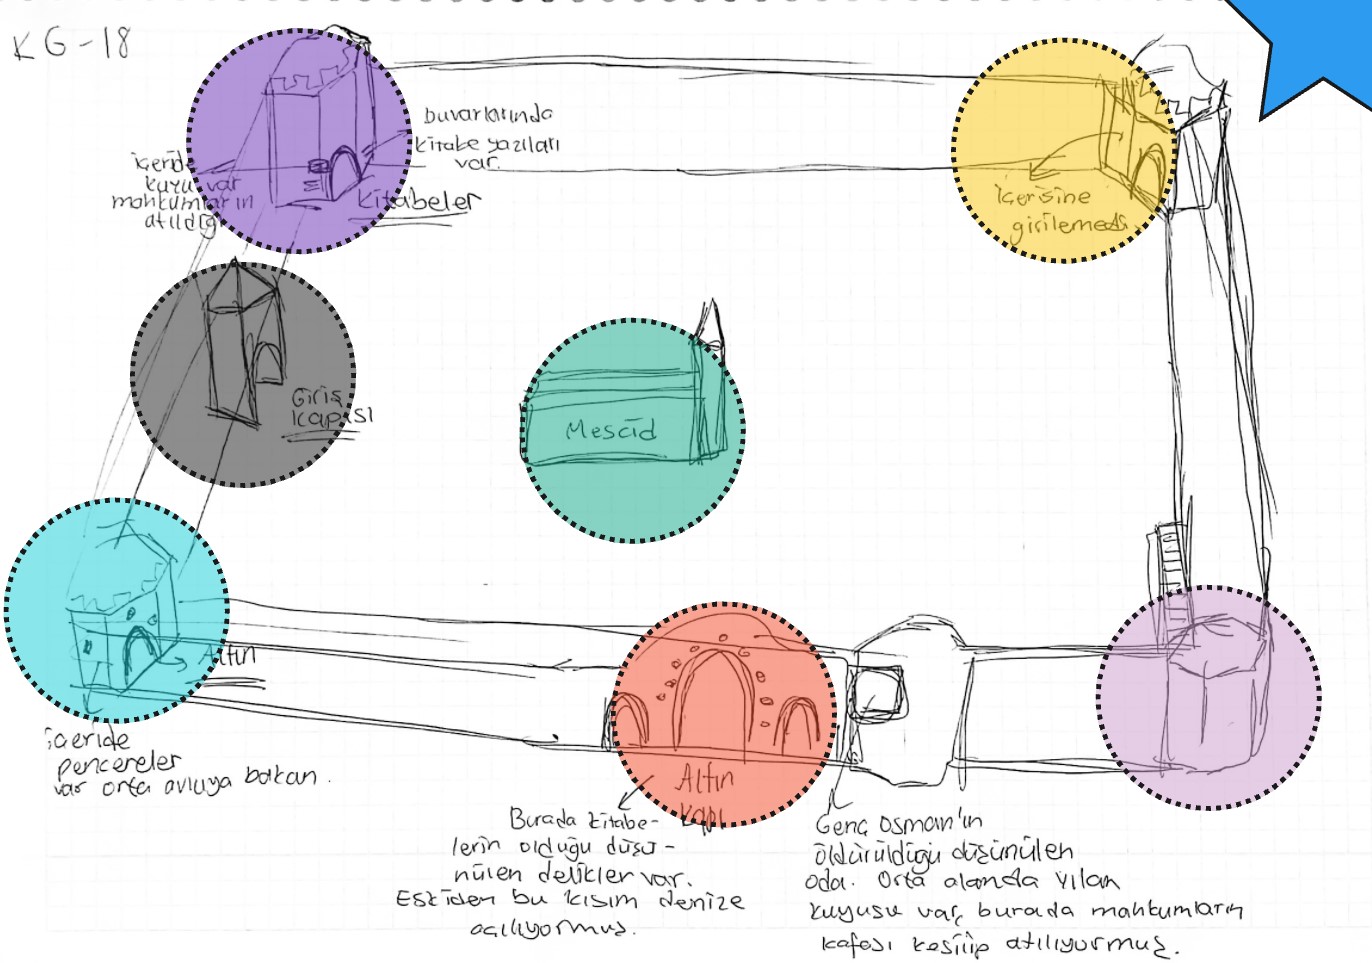 KG-18
Duvarlarında
kitabe yazıları
var.
Kitabeler
içeride
kuyu var
mahkumların
atıldığı
İçerisine
girilemedi.
Giriş
kapısı
Mescid
Altın
içeride
pencereler
var orta avluya bakan.
Altın
kapı
Burada kitabe-
lerin olduğu düşü-
nülen delikler var.
Eskiden bu kısım denize
açılıyormuş.
Genç Osman'ın
öldürüldüğü düşünülen
oda. Orta alanda yılan
kuyusu var, burada mahkumların
kafası kesilip atılıyormuş.